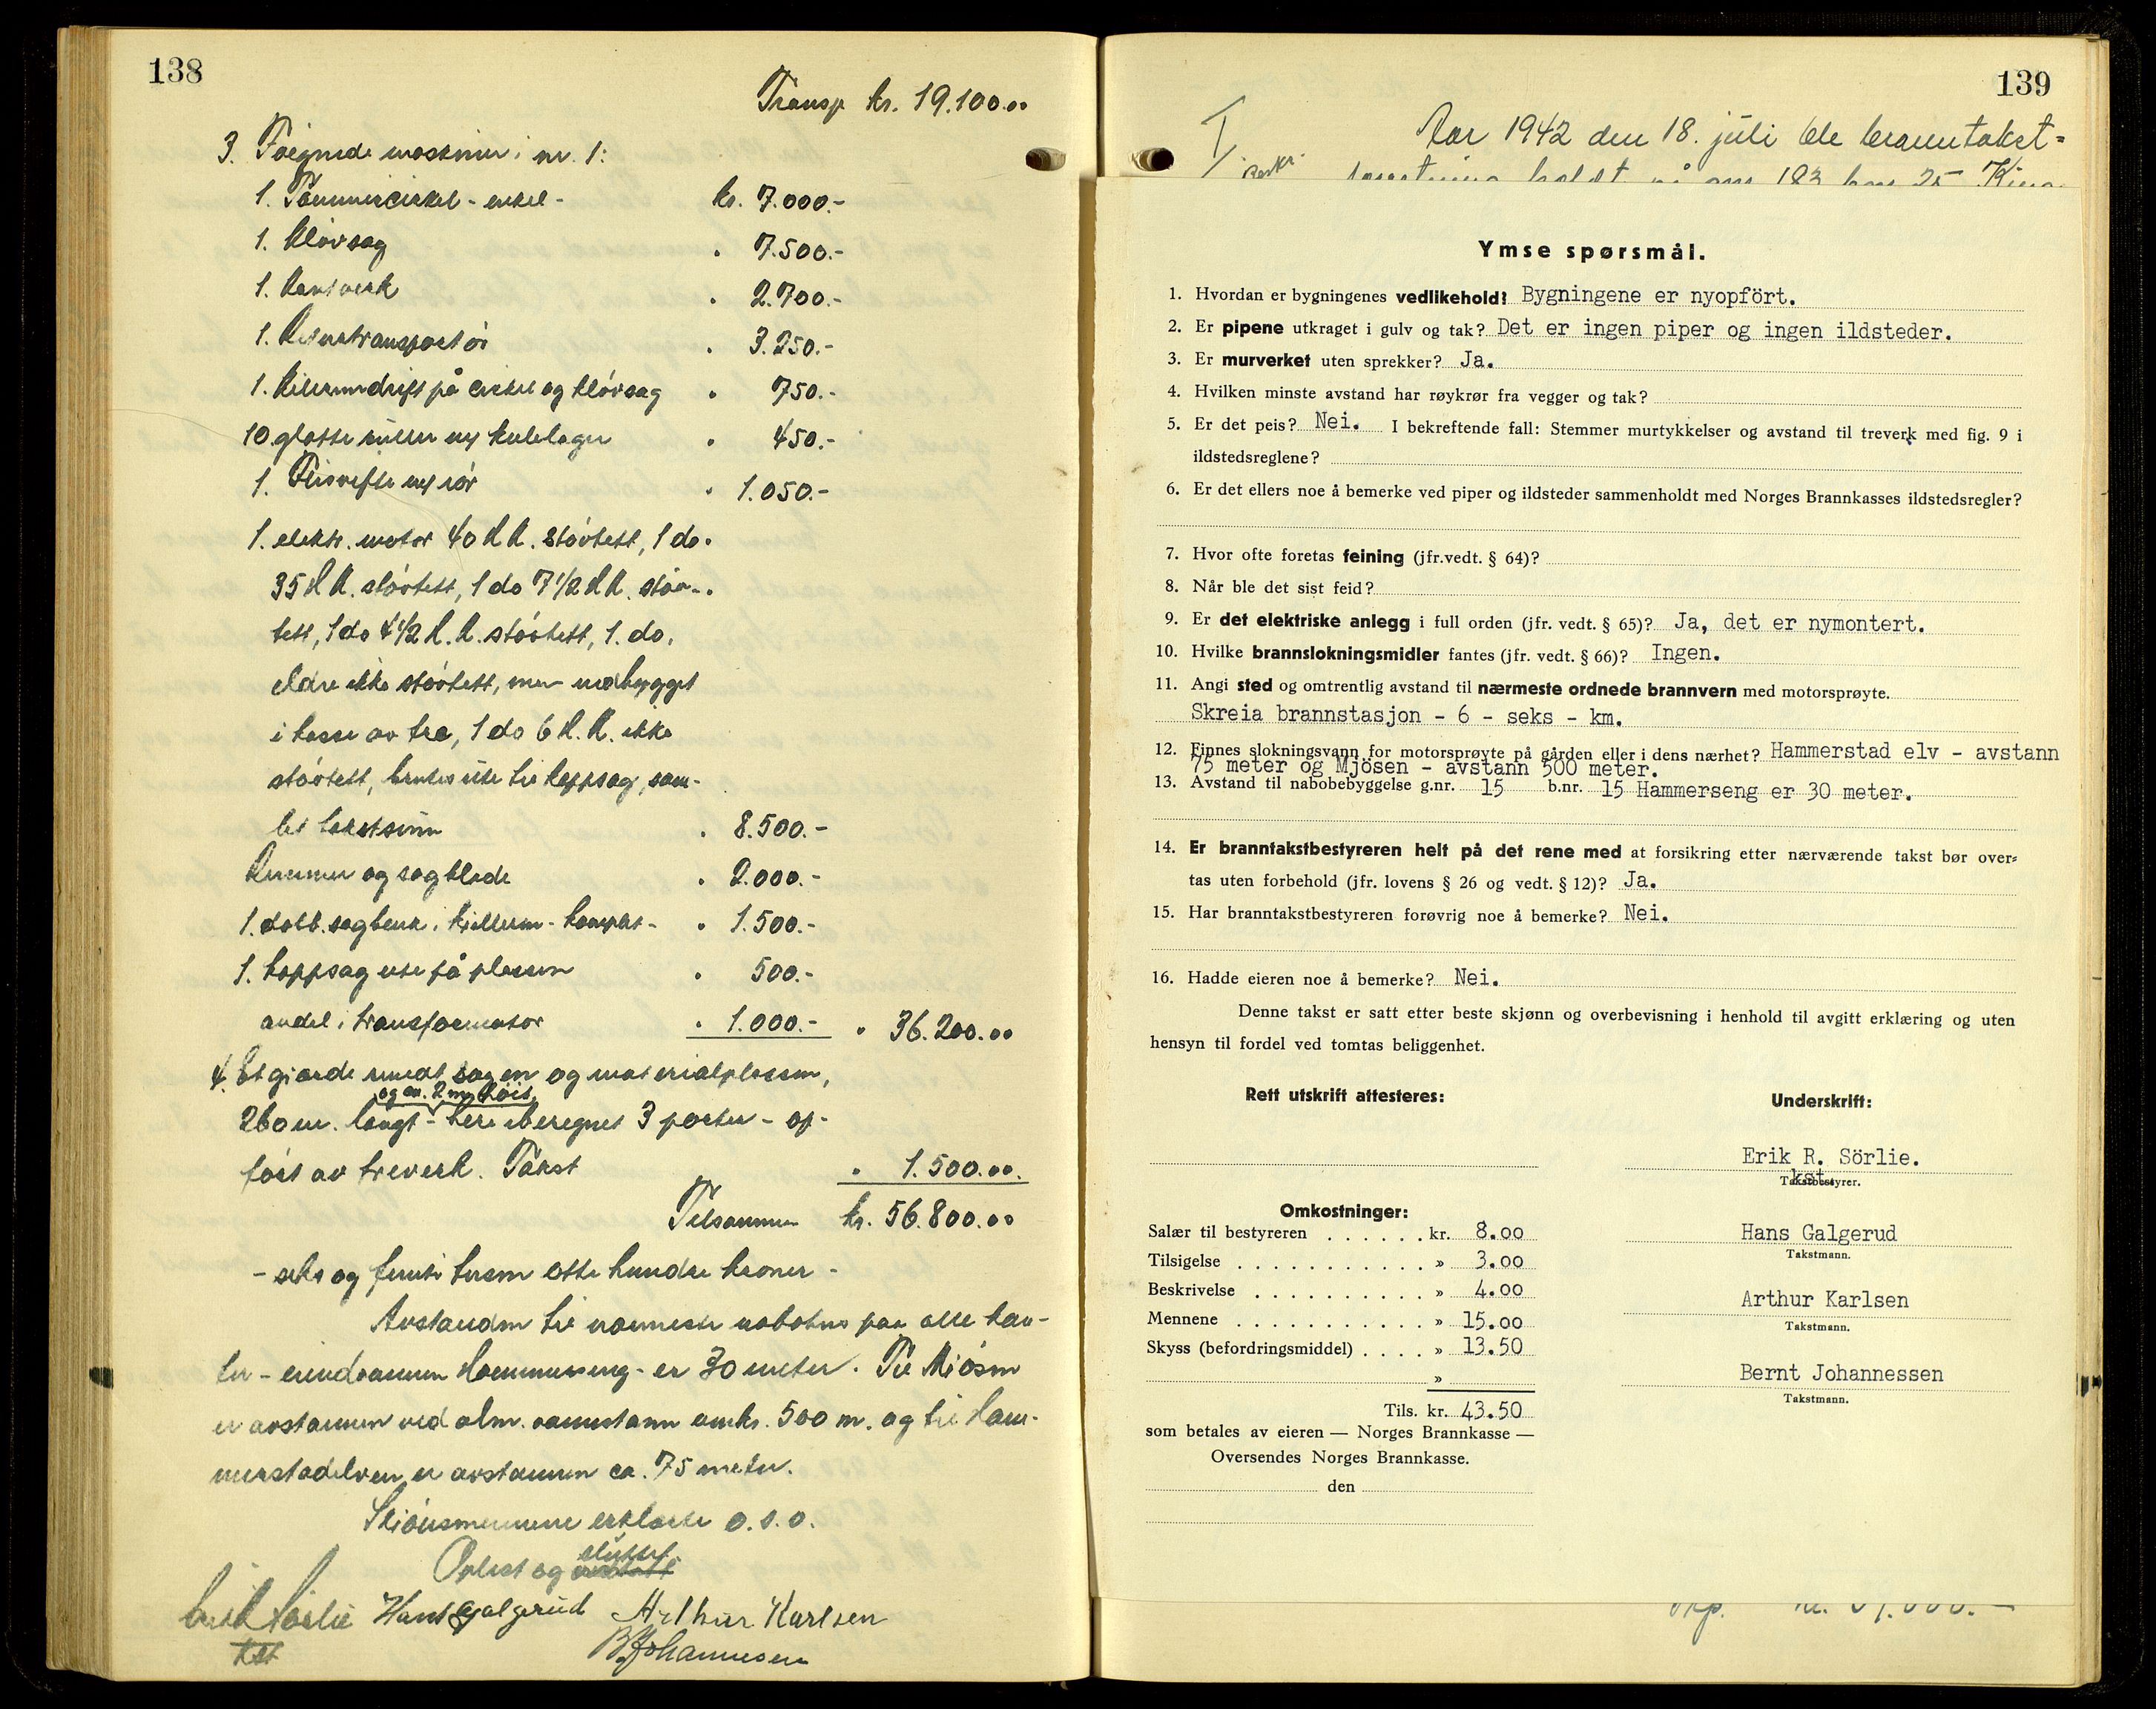 138
Transp kr. 19.100.00
3. Foregnede maskiner i nr. 1:
1. Tømmercirkel - enkel - kr. 7.000.-
1. Kløvsag " 7.500.-
1. Kantverk " 2.700.-
1. transportør " 3.250.-
1. Kileremdrift på cirkel og kløvsag " 750.-
10 glatte ruller m/ kulelager " 450.-
1. Flisvifte m/ rør " 1.050.-
1. elektr. motor 40 H.K. støvtett, 1 do.
35 H.K. støvtett, 1 do 7 1/2 H.K. støv-
tett, 1 do 4 1/2 H.K. støvtett, 1. do.
eldre ikke støvtett, men nedbygget
i kasse av tre, 1 do 6 H.K. ikke
støvtett, brukes ute til kappsag, sam-
let takstsum " 8.500.-
Remmer og sagblade " 2.000.-
1. dobb. sagbenk i kjelleren - komplet - " 1.500.-
1. kappsag ute på plassen " 500.-
andel i transformator " 1.000.- " 36.200.00
4. Et gjærde rundt sagen og materialplassen,
og ca. 2 m. høit
260 m. langt - heri iberegnet 3 porter - op-
ført av treverk. Takst " 1.500.00.
Tilsammen kr. 56.800.00
- seks og femti tusen otte hundre kroner -
Avstanden til nærmeste nabohus paa alle kan-
ter - eiendommen Hammerseng - er 30 meter. Til Mjøsen
er avstannen ved alm. vannstann omkr. 500 m. og til Ham-
merstadelven er avstannen ca. 75 meter.
Skjønsmennene erklærte o.s.v.
sluttet
Oplest og
Erik Sørlie Hans Galgerud Arthur Karlsen
kst B. Johannesen
139
Aar 1942 den 18. juli ble branntakst-
Beskr.
holdt på gnr 183 bnr 25
Ymse spørsmål.
1. Hvordan er bygningenes vedlikehold? Bygningene er nyopfört.
2. Er pipene utkraget i gulv og tak? Det er ingen piper og ingen ildsteder.
3. Er murverket uten sprekker? Ja.
4. Hvilken minste avstand har røykrør fra vegger og tak?
5. Er det peis? Nei. I bekreftende fall: Stemmer murtykkelser og avstand til treverk med fig. 9 i
ildstedsreglene?
6. Er det ellers noe å bemerke ved piper og ildsteder sammenholdt med Norges Brannkasses ildstedsregler?
7. Hvor ofte foretas feining (jfr.vedt. § 64)?
8. Når ble det sist feid?
9. Er det elektriske anlegg i full orden (jfr. vedt. § 65)? Ja, det er nymontert.
10. Hvilke brannslokningsmidler fantes (jfr. vedt. § 66)? Ingen.
11. Angi sted og omtrentlig avstand til nærmeste ordnede brannvern med motorsprøyte.
Skreia brannstasjon - 6 - seks - km.
12. Finnes slokningsvann for motorsprøyte på gården eller i dens nærhet? Hammerstad elv - avstann
75 meter og Mjösen - avstann 500 meter.
13. Avstand til nabobebyggelse g.nr. 15 b.nr. 15 Hammerseng er 30 meter.
14. Er branntakstbestyreren helt på det rene med at forsikring etter nærværende takst bør over-
tas uten forbehold (jfr. lovens § 26 og vedt. § 12)? Ja.
15. Har branntakstbestyreren forøvrig noe å bemerke? Nei.
16. Hadde eieren noe å bemerke? Nei.
Denne takst er satt etter beste skjønn og overbevisning i henhold til avgitt erklæring og uten
hensyn til fordel ved tomtas beliggenhet.
Rett utskrift attesteres:
Underskrift:
Erik R. Sörlie.
kst.
Takstbestyrer.
Hans Galgerud
Takstmann.
Arthur Karlsen
Takstmann.
Bernt Johannessen
Takstmann.
Omkostninger:
Salær til bestyreren . . . . . . kr. 8.00
Tilsigelse . . . . . . . . . . . » 3.00
Beskrivelse . . . . . . . . . . » 4.00
Mennene . . . . . . . . . . . » 15.00
Skyss (befordringsmiddel) . . . . » 13.50
»
Tils. kr. 43.50
som betales av eieren — Norges Brannkasse —
Oversendes Norges Brannkasse.
den